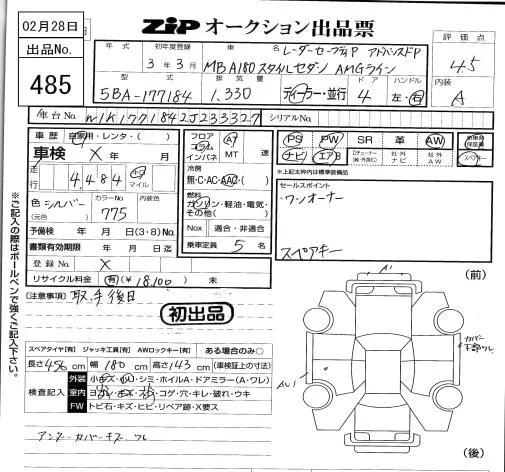 02月28日
出品No.
485
ZIP オークション出品票
年式 初年度登録 車名 レーダーセーフティP アドバンスドP
3年3月 MB A180 スタイルセダン AMGライン
評価点
4.5
型式 排気量 ドア ハンドル 内装
5BA-177184 1,330 ディーラー・並行 4 左・右 A
車台No. W1K1771842J233327 シリアルNo.
車歴 自家用・レンタ・( )
車検 X 年 月
走行 4,484 キロ マイル
色 シルバー (元色) カラーNo. 775 内装色
予備検 年 月 日(3・8)No.
書類有効期限 年 月 日迄
登録No. X
リサイクル料金 有(¥18,100) 未
フロア コラム インパネ AT MT 速
冷房 無・C・AC・AAC・( )
燃料 ガソリン・軽油・電気・その他( )
Nox 適合・非適合
乗車定員 5 名
PS PW SR 革 AW
ナビ エアB
社外ナビ 社外AW
※上記太枠内は標準装備品
セールスポイント
ワンオーナー
スペアキー
(注意事項) 取、手後日
初出品
※ご記入の際はボールペンで強くご記入下さい。
スペアタイヤ[有] ジャッキ工具[有] AWロックキー[有] ある場合のみ○
長さ 456 cm 幅 180 cm 高さ 143 cm (車検証上の寸法)
検査記入
外装 小キズ・凹・シミ・ホイルA・ドアミラー(A・ワレ)
室内 ヨゴレ・キズ・スレ・コゲ・穴・キレ・破れ・ウキ
FW トビ石・キズ・ヒビ・リペア跡・X要ス
アンダーカバーキズ、ワレ
(前)
A1
カバー
下部ワレ
AU1
(後)